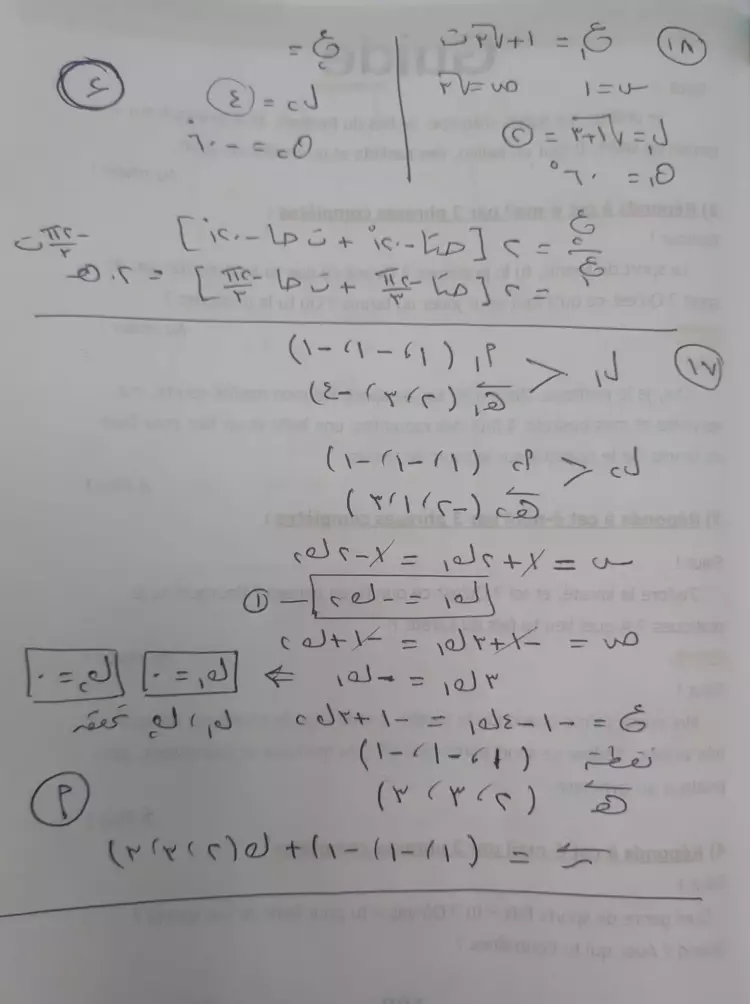 ١٨ ع١ = ١ + √٣ ت
س = ١ ص = √٣
ل١ = √(١+٣) = ٢
هـ١ = ٦٠°
ع٢ =
ل٢ = ٤
هـ٢ = -٦٠°
ع٢/ع١ = ٢ [حتا -١٢٠° + ت حا -١٢٠°]
= ٢ [حتا -٢π/٣ + ت حا -٢π/٣] = ٢ هـ^(-٢π/٣ ت)
١٧ ل١ < م١ (١، -١، -١)
هـ١ (٢، ٣، -٤)
ل٢ < م٢ (١، -١، -١)
هـ٢ (-٢، ١، ٣)
س = ١ + ٢ك١ = ١ - ٢ك٢
ك١ = -ك٢ — ①
ص = -١ + ٣ك١ = -١ + ك٢
٣ك١ = -ك١ ⇐ ك١ = ٠ ك٢ = ٠
ع = -١ - ٤ك١ = -١ + ٣ك٢ ك١، ك٢ تحققه
نقطة (١، -١، -١)
هـ (٢، ٣، ٣)
م
ر = (١، -١، -١) + ك(٢، ٣، ٣)